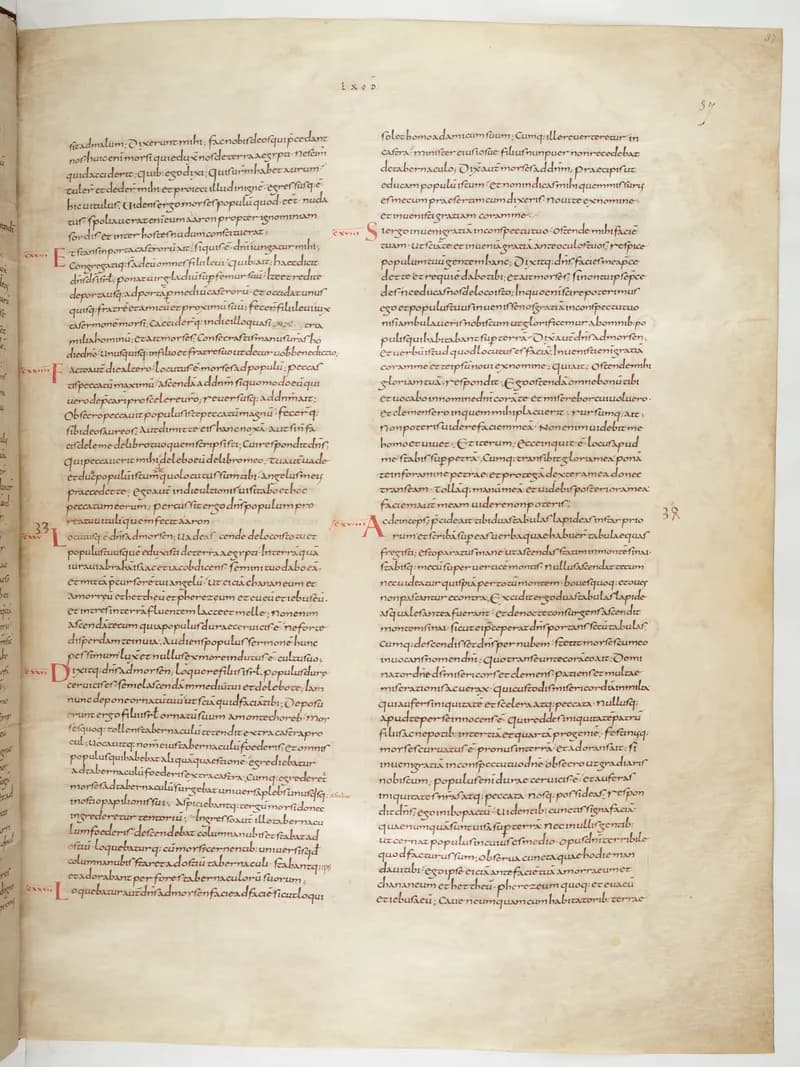 exod
37
sit ad malum; Dixerunt mihi, fac nobis deos qui p̄cedant
nos, huic enī morsi qui eduxit nos de terra aegypti nescim̄
quid acciderit; quib; ego dixi; Quis urm̄ habet aurum
tuler̄ et deder̄ mihi et proieci illud in ignē egressusq; ē
hic uitulus; Videns ergo morses populū quod eēt nuda
tus, spoliauerat enī eum aaron propter ignominiam
sordis et inter hostes nudum constituerat;
cxxiii
Et stans in porta castrorū ait; si quis ē dn̄i iungatur mihi;
Congregatiq; s̄ ad eū omnes filii leui; Quib; ait; haec dicit
dn̄s d̄s isrl; ponat uir gladiū sup̄ femur suū; Ite et redite
de porta usq; ad portā p̄ mediū castrorū et occidat unus
quisq; fratrē et amicū et proximū suū; fecer̄ filii leui iux
ta sermonē morsi; Cecider̄q; in die illo quasi tria
milia hominū; et ait morses; Consecrastis manus uras ho
die dn̄o unusquisq; in filio et fratre suo ut detur uobis benedictio;
cxxiiii
Facto aut̄ die altero; locutus ē morses ad populū; peccas
tis peccatū maximū ascendā ad dn̄m si quo modo eū qui
uero dep̄cari pro scelere uro; reuersusq; ad dn̄m ait;
Obsecro peccauit populus iste peccatū magnū fecer̄q;
sibi deos aureos; Aut dimitte eis hanc noxā aut si n̄ fa
cis dele me de libro tuo quem scripsisti; Cui respondit dn̄s;
qui peccauerit mihi delebo eū de libro meo; tu aut̄ uade
et duc populū istum quo locutus sum tibi angelus meus
praecedet te; Ego aut̄ in die ultionis uisitabo et hoc
peccatum eorum; percussit ergo dn̄s populum pro
reatu uituli quem fecit aaron
33
cxxv
Locutusq; ē dn̄s ad morsen; Uade ascende de loco isto tu et
populus tuus quē eduxisti de terra aegypti; In terrā quā
iuraui abrahā isaac et iacob dicens semini tuo dabo eā
et mittā p̄cursorē tui angelū Ut eiciā chananeum et
amorreū et hettheū et pherezeum et eueū et iebuseū
et intres in terrā fluentem lacte et melle; Non enim
ascendā tecum quia populus durae ceruicis ē ne forte
disperdam te in uia; Audiens populus sermonē hunc
pessimum luxit et nullus ex more indutus ē cultu suo;
cxxvi
Dixitq; dn̄s ad morsen; Loquere filiis isrl; populus durae
ceruicis es semel ascendā in medio tui et delebo te; Iam
nunc depone ornatū tuū ut sciā quid faciā tibi; Deposu
erunt ergo filii isrl ornatū suum a monte choreb; Mor
ses quoq; tollens tabernaculū tetendit extra castra pro
cul; Uocauitq; nomē eius tabernaculū foederis et omnis
populus qui habebat aliquā quaestionē egrediebatur
ad tabernaculū foederis extra castra; Cumq; egrederet̄
morses ad tabernaculū surgebat uniuersa plebs unusq;sq;
in ostio papilionis sui; Aspiciebantq; tergū morsi donec
ingrederetur tentoriū; Ingresso aut̄ illo tabernacu
lum foederis descendebat columna nubis et stabat ad
ostiū loquebaturq; cū morsi cernentib; uniuersis qd̄
columna nubis staret ad ostiū tabernaculi stabantq; ipsi
et adorabant per fores tabernaculorū suorum;
cxxvii
Loquebatur aut̄ dn̄s ad morsen facie ad faciē sicut loqui
solet homo ad amicum suum; Cumq; ille reuerteretur in
castra; minister eius iosue filius nun puer non recedebat
de tabernaculo; Dixit aut̄ morses ad dn̄m; Praecipis ut
educam populū istum et non indicas mihi quem missurus
es mecum praesertim cum dixeris noui te ex nomine
et inuenisti gratiam coram me
cxxviii
Si ergo inueni gratiā in conspectu tuo ostende mihi faciē
tuam ut sciā te et inueniā gratiā ante oculos tuos; respice
populum tuū gentem hanc; Dixitq; dn̄s; facies mea p̄ce
det te et requiē dabo tibi; et ait morses; si non tu ipse p̄ce
des ne educas nos de loco isto; In quo enī scire poterimus
ego et populus tuus inuenisse nos gratiā in conspectu tuo
nisi ambulaueris nobiscum ut glorificemur ab omnib; po
pulis qui habitant sup̄ terrā; Dixit aut̄ dn̄s ad morsen;
Et uerbū istud quod locutus es faciā; Inuenisti enī gratiā
coram me et te ipsū noui ex nomine; qui ait; Ostende mihi
gloriam tuā; respondit; Ego ostendā omne bonū tibi
et uocabo in nomine dn̄i corā te et miserebor cui uoluero
et clemens ero in quem mihi placuerit; rursumq; ait;
Non poteris uidere faciem meā; Non enim uidebit me
homo et uiuet; Et iterum; Ecce inquit ē locus apud
me stabis sup̄ petrā; Cumq; transibit gloria mea ponā
te in foramine petrae et protegā dextera mea donec
transeam; Tollāq; manū meā et uidebis posteriora mea
faciē aut̄ meam uidere non poteris;
cxxviiii
34
Ac deinceps; p̄cide ait tibi duas tabulas lapideas instar prio
rum et scribā sup̄ eas uerba quae habuer̄ tabulae quas
fregisti; esto paratus mane ut ascendas statim in monte sinai
stabisq; mecū sup̄ uerticē montis; nullus ascendat tecum
nec uideatur quispiā per totū montem; boues quoq; et oues
non pascantur e contra; Excidit ergo duas tabulas lapide
as quales antea fuerant et de nocte consurgens ascendit
montem sinai sicut ei p̄ceperat dn̄s portans secū tabulas;
Cumq; descendisset dn̄s per nubem; stetit morses cum eo
inuocans nomen dn̄i; Quo transeunte corā eo ait; Domi
nator dn̄e ds̄ misericors et clemens patiens et multae
miserationis ac uerax; qui custodis misericordiā in milia
qui aufers iniquitatē et scelera atq; peccata nullusq;
apud te per se innocens ē; Qui reddes iniquitatē patrū
filiis ac nepotib; in tertiā et quartā progeniē; festinusq;
morses curuatus ē pronus in terrā et adorans ait; si
inueni gratiā in conspectu tuo dn̄e obsecro ut gradiaris
nobiscum; populus enī durae ceruicis ē et auferas
iniquitates nras atq; peccata nosq; possideas; respon
dit dn̄s; ego inibo pactū uidentib; cunctis signa faciā
quae numquā sunt uisa sup̄ terrā nec in ullis gentib;
ut cernat populus in cuius es medio opus dn̄i terribile
quod facturus sum; Obserua cuncta quae hodie man
do tibi ego ipse eiciā ante faciē tuā amorraeum et
chananeum et hettheū pherezeum quoq; et eueū
et iebuseū; Caue ne umquam cum habitatorib; terrae